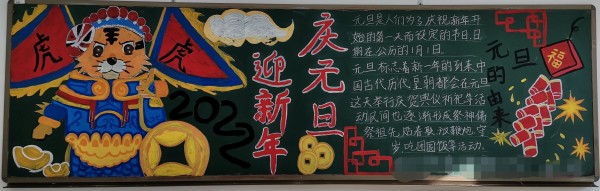 虎
虎
2022
庆元旦
迎新年
元旦是人们为了庆祝新年开
始的第一天而设定的节日,日
期在公历的1月1日.
元旦标志着新一年的到来,中
国古代历代皇朝都会在元旦
这天举行庆贺典仪祈祀等活
动,民间也逐渐形成祭神佛
祭祖先,贴春联,放鞭炮,守
岁,吃团圆饭等活动.
元旦的由来
福